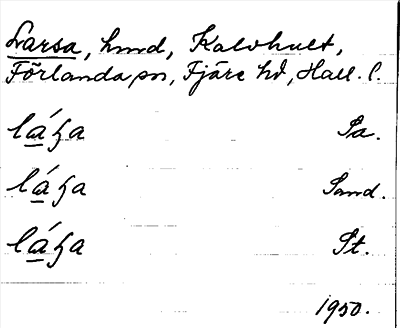 Larsa, hmd, Kalvhult,
Förlanda sn, Fjäre hd, Hall. l.
láʒa Pa.
láʒa Sand.
láʒa St.
1950.